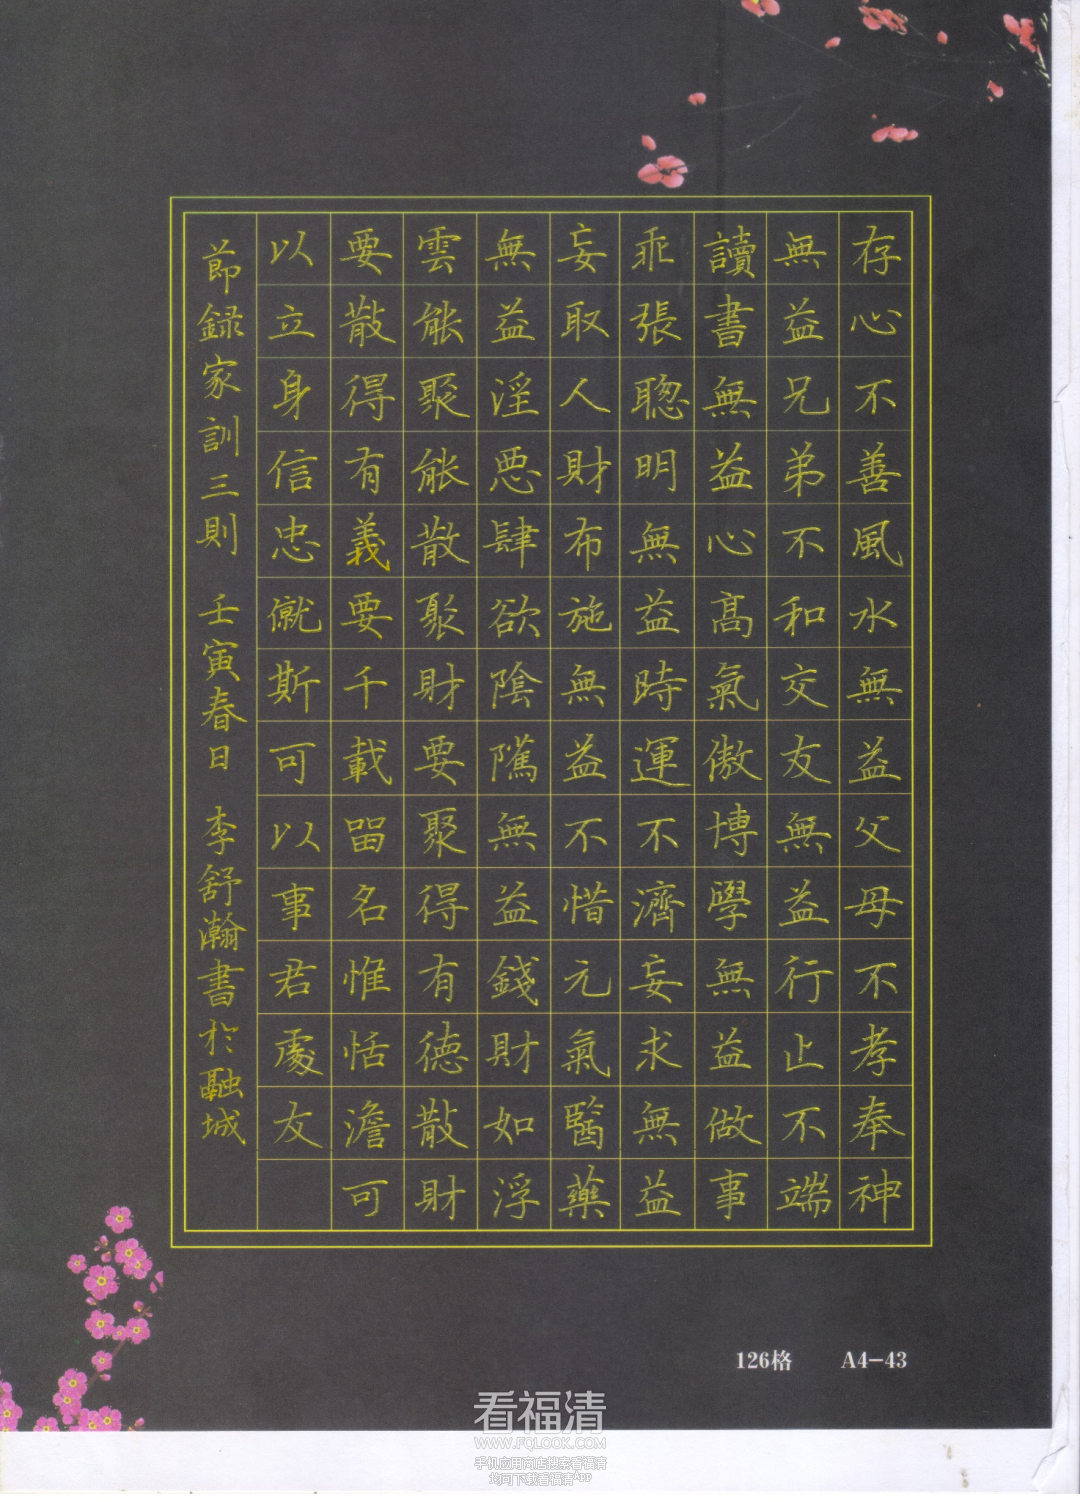 存心不善風水無益父母不孝奉神
無益兄弟不和交友無益行止不端
讀書無益心高氣傲博學無益做事
乖張聰明無益時運不濟妄求無益
妄取人財布施無益不惜元氣醫藥
無益淫惡肆欲陰隲無益錢財如浮
雲能聚能散聚財要聚得有德散財
要散得有義要千載留名惟恬澹可
以立身信忠僦斯可以事君處友
節録家訓三則 壬寅春日 李舒瀚書於融城
126格 A4-43
看福清
WWW.FQLOOK.COM
手机应用商店搜索看福清
均可下载看福清App